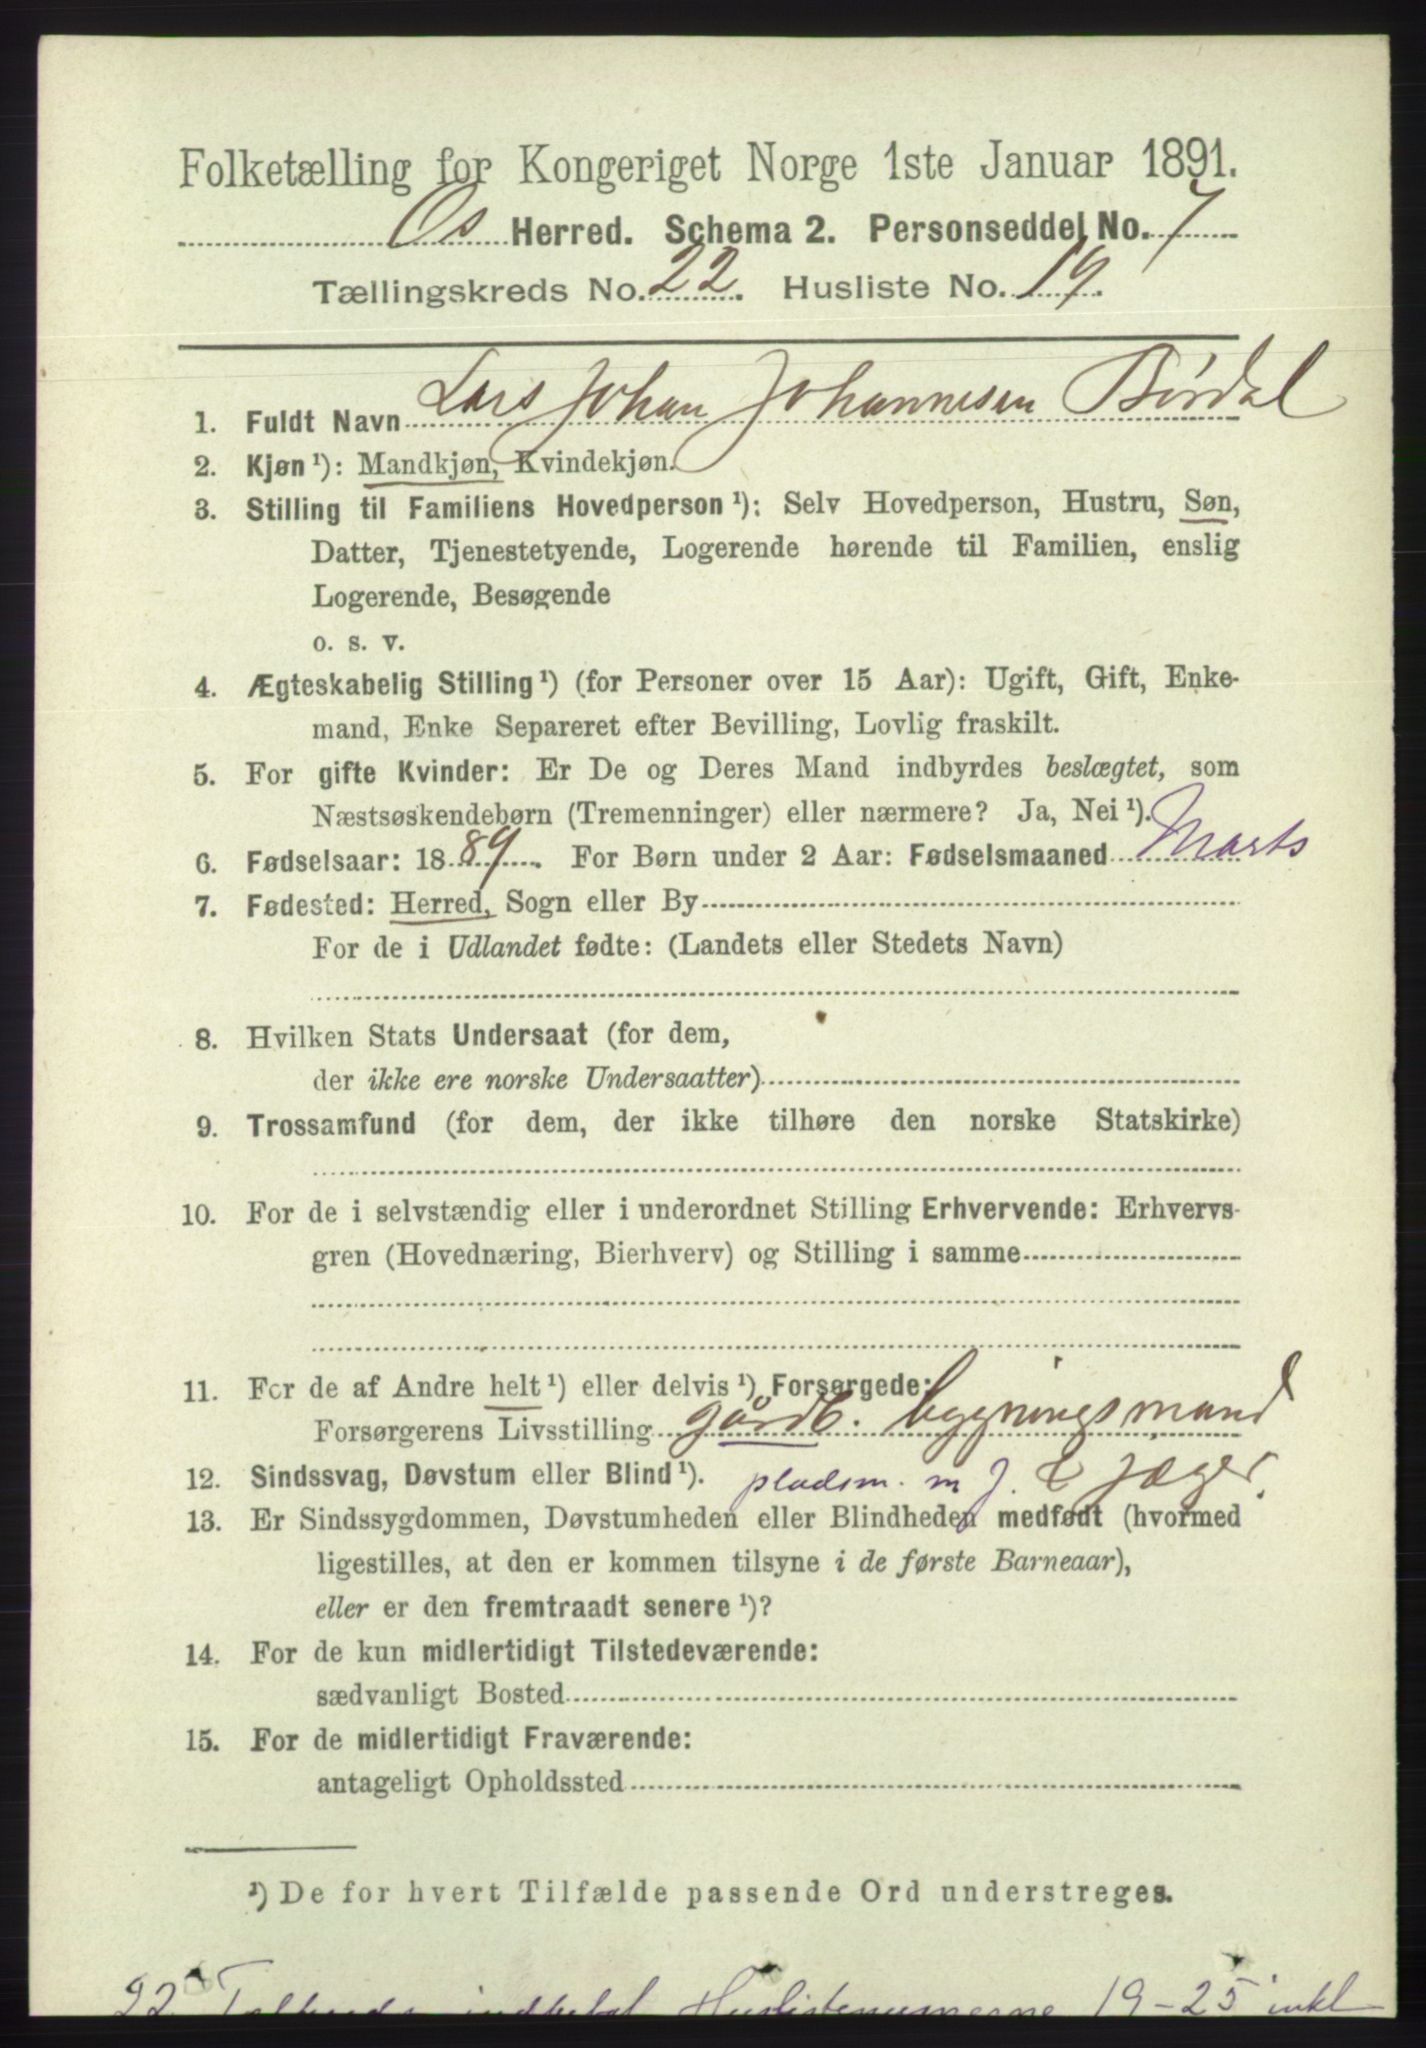 Folketælling for Kongeriget Norge 1ste Januar 1891.
Os Herred. Schema 2. Personseddel No. 7
Tællingskreds No. 22. Husliste No. 19.
1. Fuldt Navn Lars Johan Johannesen Børdal
2. Kjøn ¹): Mandkjøn, Kvindekjøn.
3. Stilling til Familiens Hovedperson ¹): Selv Hovedperson, Hustru, Søn,
Datter, Tjenestetyende, Logerende hørende til Familien, enslig
Logerende, Besøgende
o. s. v.
4. Ægteskabelig Stilling ¹) (for Personer over 15 Aar): Ugift, Gift, Enke-
mand, Enke Separeret efter Bevilling, Lovlig fraskilt.
5. For gifte Kvinder: Er De og Deres Mand indbyrdes beslægtet, som
Næstsøskendebørn (Tremenninger) eller nærmere? Ja, Nei ¹).
6. Fødselsaar: 1889. For Børn under 2 Aar: Fødselsmaaned Marts
7. Fødested: Herred, Sogn eller By
For de i Udlandet fødte: (Landets eller Stedets Navn)
8. Hvilken Stats Undersaat (for dem,
der ikke ere norske Undersaatter)
9. Trossamfund (for dem, der ikke tilhøre den norske Statskirke)
10. For de i selvstændig eller i underordnet Stilling Erhvervende: Erhvervs-
gren (Hovednæring, Bierhverv) og Stilling i samme
11. For de af Andre helt ¹) eller delvis ¹) Forsørgede:
Forsørgerens Livsstilling gårdb. bygningsmand
12. Sindssvag, Døvstum eller Blind ¹). pladsm. m j. & jæger.
13. Er Sindssygdommen, Døvstumheden eller Blindheden medfødt (hvormed
ligestilles, at den er kommen tilsyne i de første Barneaar),
eller er den fremtraadt senere ¹)?
14. For de kun midlertidigt Tilstedeværende:
sædvanligt Bosted
15. For de midlertidigt Fraværende:
antageligt Opholdssted
¹) De for hvert Tilfælde passende Ord understreges.
22 Huslistenumerne 19-25 inkl